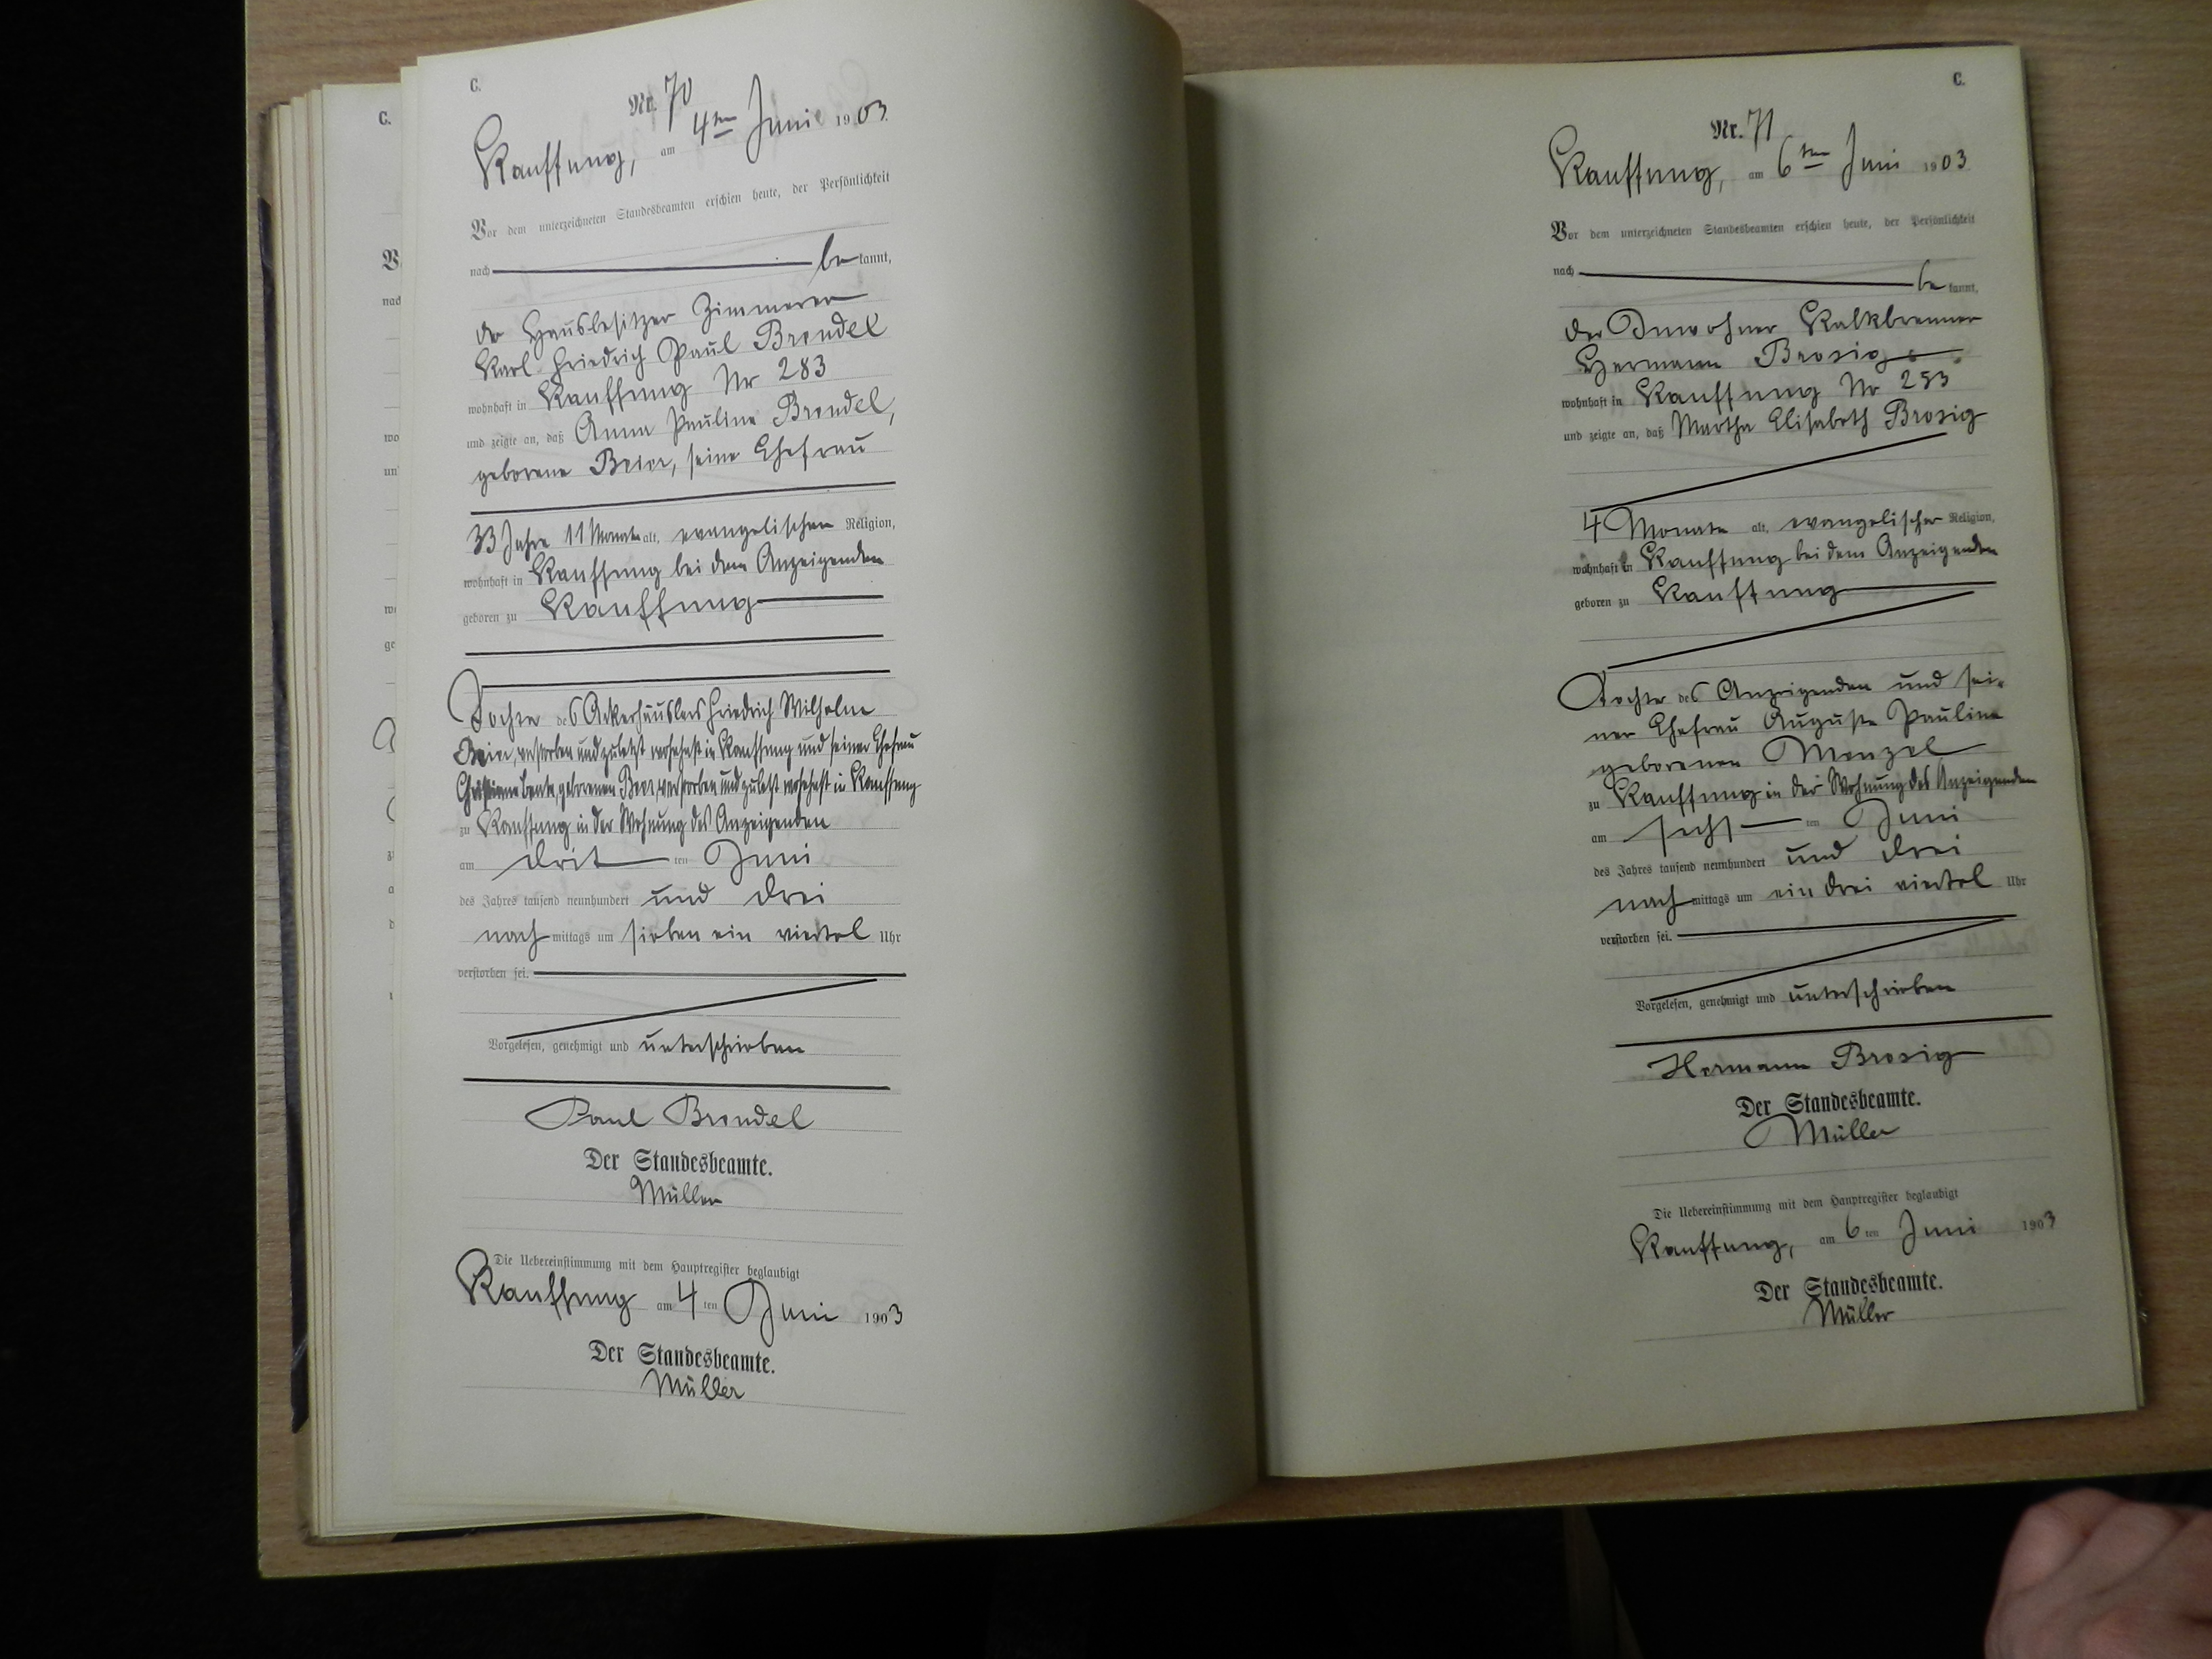 C.
Nr. 70
Kauffung, am 4ten Juni 1903.
Vor dem unterzeichneten Standesbeamten erschien heute, der Persönlichkeit
nach bekannt,
der Hausbesitzer Zimmerer
Karl Friedrich Paul Brendel
wohnhaft in Kauffung Nr 283
und zeigte an, daß Anna Pauline Brendel,
geborene Beier, seine Ehefrau
33 Jahre 11 Monate alt, evangelischen Religion,
wohnhaft in Kauffung bei dem Anzeigenden
geboren zu Kauffung
Tochter des Ackerhäuslers Friedrich Wilhelm
Beier, verstorben und zuletzt wohnhaft in Kauffung und seiner Ehefrau
Christiane Beate, geborenen Beer, verstorben und zuletzt wohnhaft in Kauffung
zu Kauffung in der Wohnung des Anzeigenden
am dritten Juni
des Jahres tausend neunhundert und drei
nachmittags um sieben ein viertel Uhr
verstorben sei.
Vorgelesen, genehmigt und unterschrieben
Paul Brendel
Der Standesbeamte.
Müller
Die Uebereinstimmung mit dem Hauptregister beglaubigt
Kauffung am 4ten Juni 1903
Der Standesbeamte.
Müller
C.
Nr. 71
Kauffung, am 6ten Juni 1903
Vor dem unterzeichneten Standesbeamten erschien heute, der Persönlichkeit
nach bekannt,
der Inwohner Kalkbrenner
Hermann Brosig
wohnhaft in Kauffung Nr 253
und zeigte an, daß Martha Elisabeth Brosig
4 Monate alt, evangelischer Religion,
wohnhaft in Kauffung bei dem Anzeigenden
geboren zu Kauffung
Tochter des Anzeigenden und sei-
ner Ehefrau Auguste Pauline
geborenen Menzel
zu Kauffung in der Wohnung des Anzeigenden
am sechsten Juni
des Jahres tausend neunhundert und drei
nachmittags um ein drei viertel Uhr
verstorben sei.
Vorgelesen, genehmigt und unterschrieben
Hermann Brosig
Der Standesbeamte.
Müller
Die Uebereinstimmung mit dem Hauptregister beglaubigt
Kauffung, am 6ten Juni 1903
Der Standesbeamte.
Müller